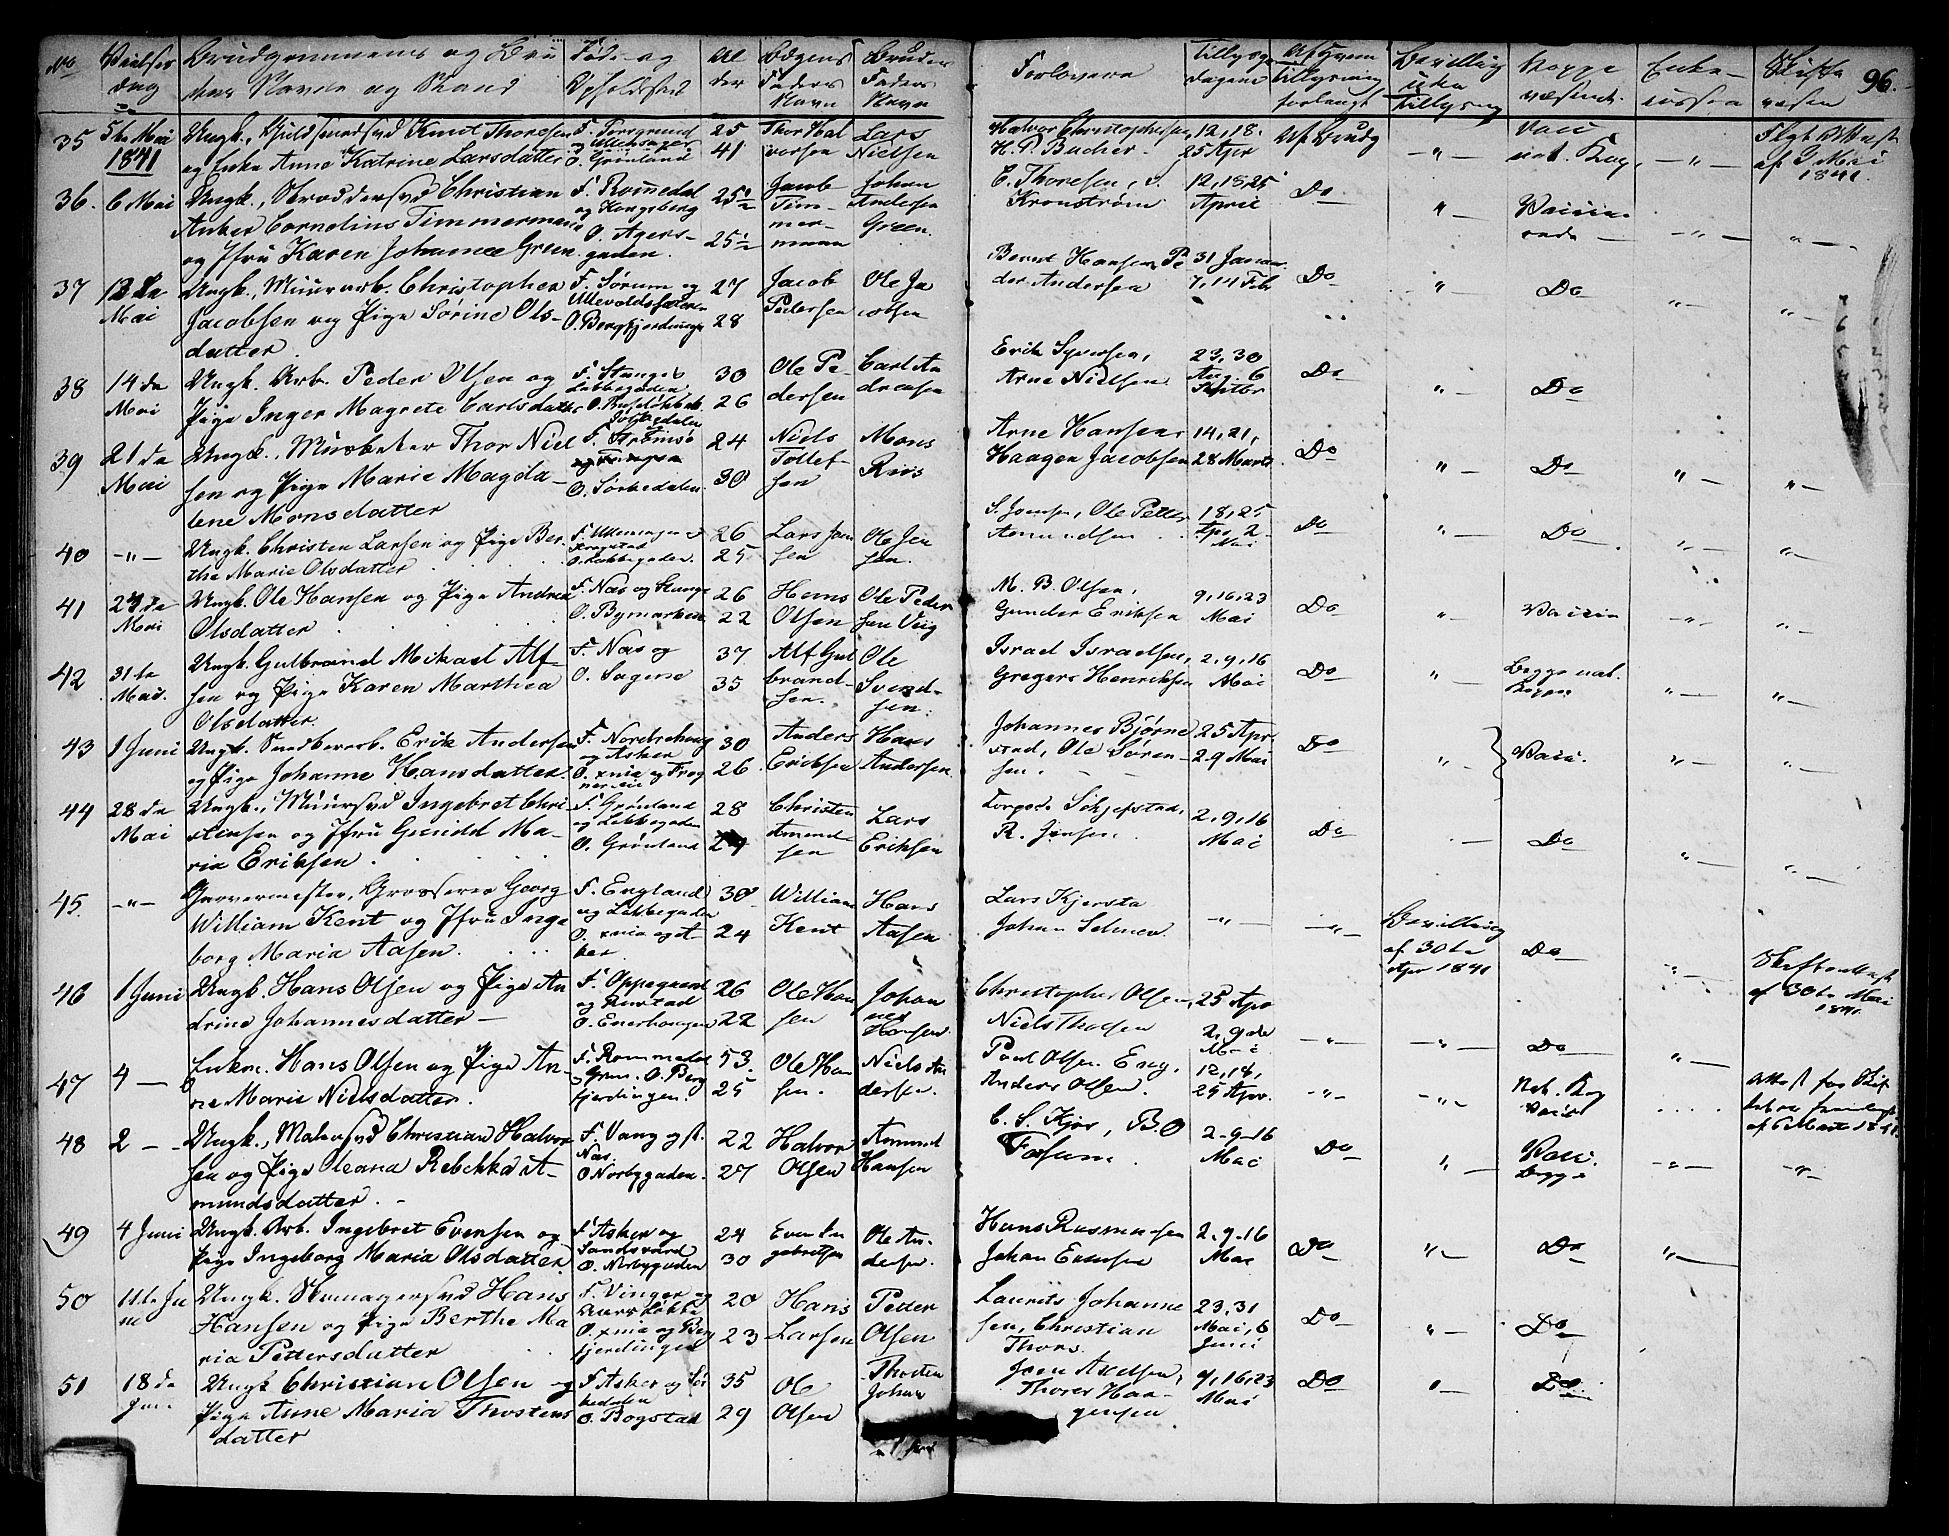 No Vielses dag Brudgommens og Bru dens Navne og Stand Føde og Opholdsted Al der Bdgens Faders Navn Brudens Faders Navn Forlovere Tillysgs dagene Af hvem Tillysning forlangt Bevilling uden Tillysning Koppe væsenet Enke Skifte væsen 96.
35 5te Mai 1841 Ungk., Knud Thoresen og Enke Anne Katrine Larsdatter F. Porsgrund og O. Grønland 25 41 Thor Hal versen Lars Nielsen Halvor Christophersen H. P. Bucher 12, 18. 25 Apr Af Brudg — " — Vac nat. Kop, — " — af 3 Mai 1841.
36. 6 Mai Ungk., Skræddersvd Christian Anker Cornelius Timmermann og Jfru Karen Johanne Green F. Romedal og Kongsberg O. Agers- gaden. 25½ 25½ Jacob Tim- mer- mann Johan Andersen Green. C. Thoresen, Kronstrøm 12, 18 25 April Do " — — " — " —
37 12te Mai Ungk., Muurarb. Christopher Jacobsen og Pige Sørine Ols- datter. F. Sørum og Ullevoldsveien O. Bergfjerdingen 27 28 Jacob Pedersen Ole Ja cobsen Bernt Hansen, Pe der Andersen 31 Januar 7, 14 Febr Do " Do " — " —
38 14 de Mai Ungk. Arb. Peder Olsen og Pige Inger Magrete Carlsdatter F. Stange Løkkegaden O. 30 26 Ole Pe dersen Carl An dreasen Erik Syversen, Arne Nielsen 23, 30 Aug. 6 Septbr Do " — Do
39 21 de Mai Ungk., Musketer Thor Niel sen og Pige Marie Magda- lene Monsdatter F. Strømsø O. Sørkedalen. 24 30 Niels Tollef- sen Mons Riis Arne Hansen, Haagen Jacobsen 14, 21, 28 Marts Do " — Do " — " —
40 — " — Ungk. Christen Larsen og Pige Ber- the Marie Olsdatter F. O. Løkkegaden. 26 25 Lars Jen sen Ole Jen sen. S. Jensen, Ole Petter Amundsen 18, 25 Apr 2 Mai Do " — Do " — " —
41 24 de Mai Ungk. Ole Hansen og Pige Andrea Olsdatter F. Næs og Stange O. Bymarken 26 22 Hans Olsen Ole Peder sen Viig M. B. Olsen, Gunder Eriksen 9, 16, 23 Mai Do " — — " — " —
42 31te Mai. Ungk. Gulbrand Mikael Alf sen og Pige Karen Marthea Olsdatter. F. Næs og O. Sagene 37 35 Alf Gul brand- sen. Ole Svend- sen. Israel Israelsen, Gregers Henriksen 2, 9, 16 Mai Do " — Begge nat. Kopper " — " —
43 1 Juni Ungk. Erik Andersen og Pige Johanne Hansdatter. F. Nordrehoug og Asker O. xnia og Frog nerveien 30 26 Anders Eriksen Hans Andersen Johannes Bjørne stad, Ole Søren- sen. 25 Apr 2-9 Mai Do " — Vacci. " — " —
44 28 de Mai Ungk., Muursvd Ingebret Chri stensen og Jfru Gunild Ma- ria Eriksen. F. Grønland og Løkkegaden O. Grønland 28 Christen Amund- sen Lars Eriksen R. Jensen. 2, 9, 16 Mai Do . — Do " — " —
45. — " — Garvermester, Grosserer Georg William Kent og Jfru Inge borg Maria Aasen. F. England og Løkkegaden O. xnia og A ker. 30 24 William Kent Hans Aasen Lars Kjersta Johan Selmer. — " — — " — Bevilling af 30te Apr 1841 Do " — af 30te Mai 1841
46 1 Juni Ungk. Hans Olsen og Pige An drine Johannesdatter — F. Oppegaard og O. Enerhaugen 26 22 Ole Han sen Johan nes Hansen. Christopher Olsen, Niels Tholsen 25 Apr 2, 9 de Mai — " — — " — Do " —
47 4 — Enkem. Hans Olsen og Pige An- ne Marie Nielsdatter. F. Rommedal O. Berg fjerdingen. 53. 25 Ole Han sen. Niels An dersen. Poul Olsen Eng, Anders Olsen. 12, 18, 25 Apr. — " — — " — Nat. Kop Vacci Attest fra Skif af 6 Marts 1841
48 2 — Ungk., Malersvd Christian Halvor sen og Pige Oleana Rebekka A- mundsdatter. — F. Vang og Næs. O Norbygaden. 22 27 Halvor Olsen Amund Hansen C. S. Kjør, B. O Fossum. 2-9-16 Mai Do " — Vacci. begge — " — — " —
49 4 Juni Ungk. Arb. Ingebret Evensen og Pige Ingeborg Maria Olsdatter F Asker og Sandsværd O. Norbygaden 24 30 Even In gebretsen Ole An- dersen. Hans Rasmussen Johan Evensen 2-9-16 Mai Do " — Do " —
50 11te Ju ni Ungk. Skomagersvd Hans Hansen og Pige Berthe Ma ria Pettersdatter F. Vinger og O. xnia og Berg fjerdingen 20 23 Hans Larsen Peder Olsen Laurits Johanne sen, Christian Thors. 23, 31 Mai, 6 Juni Do " — Do
51 18 de Juni Ungk Christian Olsen og Pige Anne Maria Thostens datter F. Asker og Sør kedalen O. Bogstad 35 29 Ole Olsen Thosten Johan Jens Axelsen, Thorer Haa- gensen 9, 16, 23 Mai Do " — Do